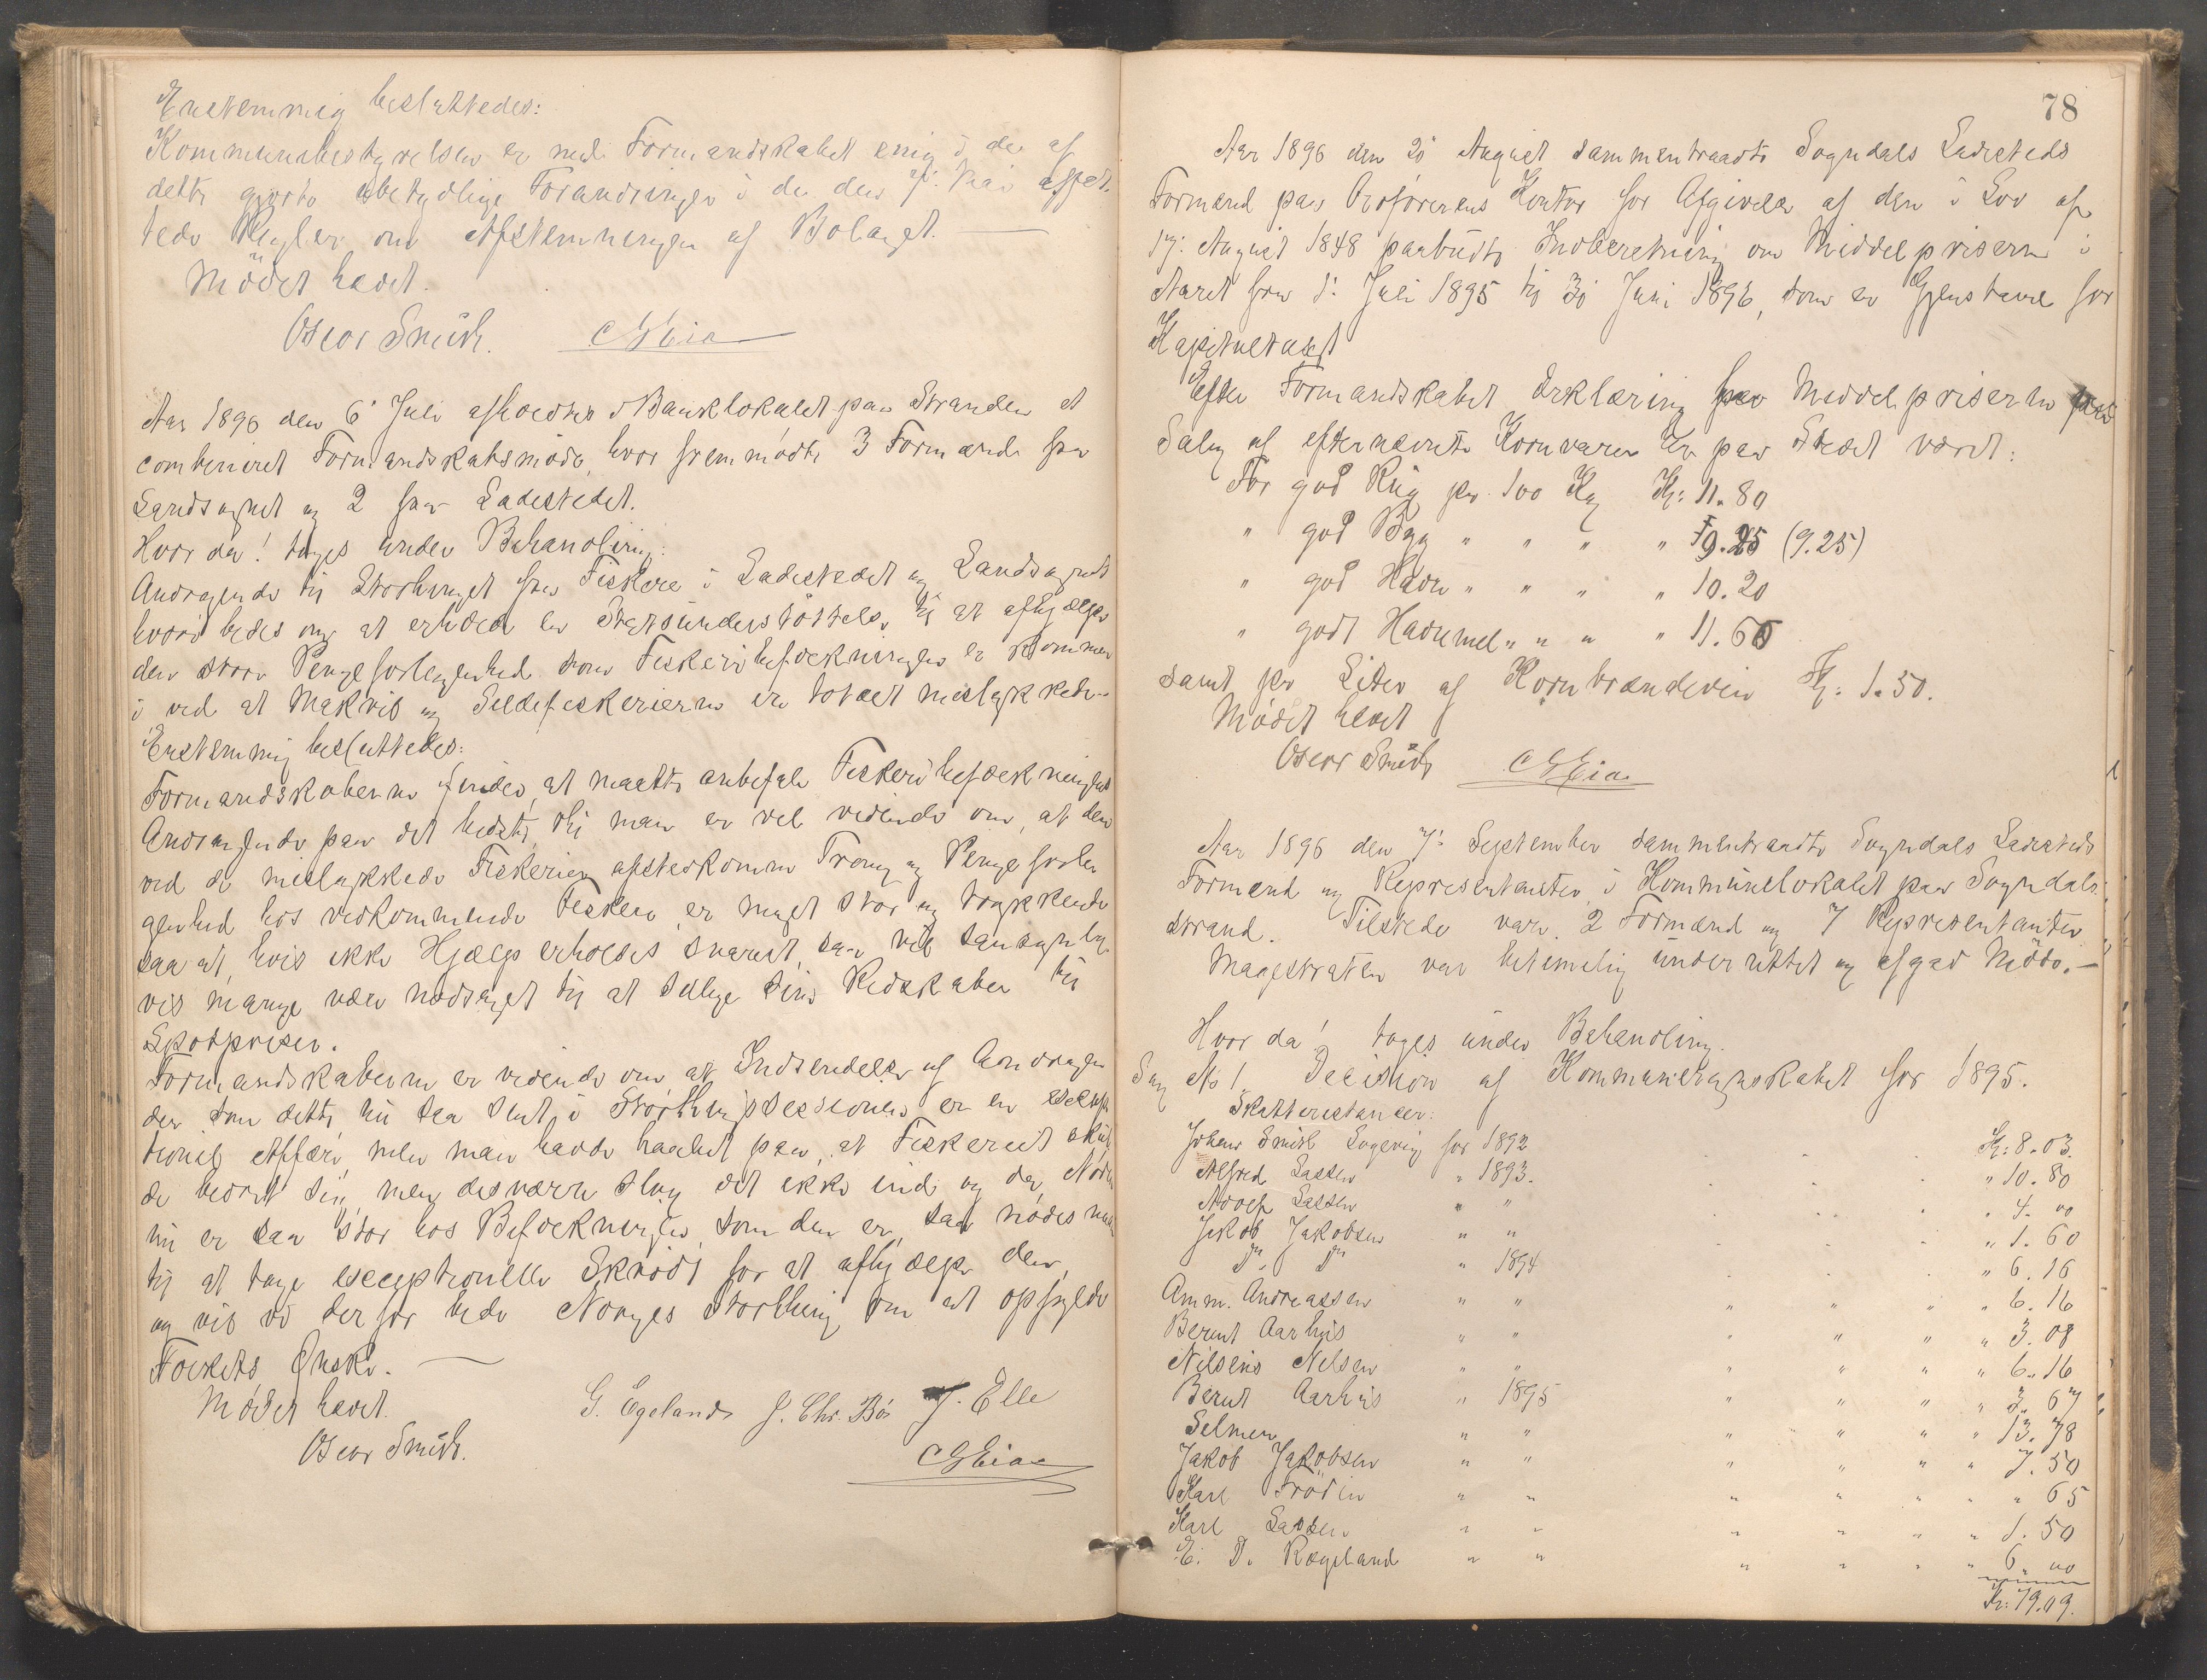 Enstemmig besluttedes:
Kommunebestyrelsen er med Formandskabet enig i de af
dette gjorte ubetydelige Forandringer i de den 7. Mai
tede Regler om Afstemningen af Bolaget. —
Mödet hævet.
Oscar Smith. CGEia
Aar 1896 den 6' Juli afholdtes i Banklokalet paa Stranden et
combineret Formandskabsmöde, hvor fremmödte 3 Formænd fra
Landsognet og 2 fra Ladestedet.
Hvor da! toges under Behandling:
Andragende til Storthinget fra Fiskere i Ladestedet og Landsognet
hvori bedes om at erholde en Statsunderstöttelse til at afhjælpe
den store Pengeforlegenhed som Fiskeribefolkningen er kommen
i ved at Makril og Sildefiskerierne ere totalt mislykkede.-
Enstemmig besluttedes:
Formandskaberne finder at maatte anbefale Fiskeribefolkningens
Andragende paa det bedste, thi man er vel vidende om, at den
ved de mislykkede Fiskerier afstedkomne Trang og Pengeforle-
genhed hos vedkommende Fiskere er meget stor og trykkende
saa at, hvis ikke Hjælp erholdes snarest, saa vil sandsynlig-
vis mange være nødsaget til at sælge sine Redskaber til
Spotpriser.
Formandskaberne er vidende om at Indsendelse af Andragen
der som dette, nu saa sent i Storthingssessionen er en excep
tionel Affære, men man havde haabet paa, at Fiskeriet skul
de bedret sig, men desværre slog det ikke ind og da Nöden
nu er saa stor hos Befolkningen, som den er, saa nödes man
til at tage exceptionelle Skridt for at afhjælpe den,
og vil vi derfor bede Norges Storthing om at opfylde
Folkets Önske. —
Mödet hævet.
G. Egelands J. Chr. Bö J. Elle
Oscar Smith.
CGEia
78
Aar 1896 den 20 August sammentraadte Sogndals Ladesteds
Formænd paa Ordförerens Kontor for Afgivelse af den i Lov af
17. August 1848 paabudte Indberetning om Middelpriserne i
Aaret fra 1. Juli 1895 til 30 Juni 1896, som er Gjenstand for
Kapitelstaxt
Efter Formandskabet Erklæring har Middelpriserne paa
Salg af efternævnte Kornvarer her paa Stedet været:
For god Rug pr. 100 Kg Kr: 11.80
" god Byg " " " " 9.25 (9.25)
" god Havre " " " " 10.20
" godt Havremel " " " " 11.65
samt pr Liter af Kornbrændevin Kr: 1.50.
Mødet hævet
Oscar Smith CGEia
Aar 1896 den 7. September sammentraadte Sogndals Ladesteds
Formænd og Repræsentanter i Kommunelokalet paa Sogndals-
strand. Tilstede var 2 Formænd og 7 Representanter
Magistraten var betimelig underrettet og afgav Möde.—
Hvor da! toges under Behandling.
Sag No 1. Decision af Kommuneregnskabet for 1895.
Skatterestancer:
Johan Smith Logevig for 1892 Kr: 8.03.
Alfred Lassen " 1893. " 10.80
Adolf Lassen " " " 4.00
Jakob Jakobsen " " " 1.60
Do Do " 1894 " 6.16
Amm. Andreassen " " " " " " 6.16
Bernt Aarhus " " " " " " 3.08
Nilsenius Nilsen " " " " " " 6.16
Bernt Aarhus " 1895 " " " " 3.67
Selmer " " " " " " 13.78
Jakob Jakobsen " " " " " " 7.50
Karl Frödin " " " " " " " 65
Karl Lassen " " " " " " 1.50
E. D. Rægeland " " " " " " 6.00
Kr: 79.09.